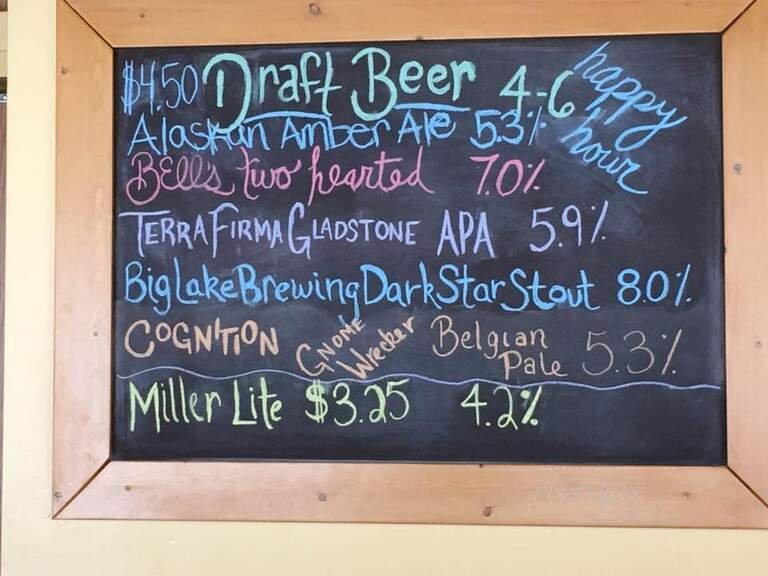 $4.50 Draft Beer 4-6 happy hour
Alaskan Amber Ale 5.3%
BELL's two hearted 7.0%
TERRA FIRMA GLADSTONE APA 5.9%
Big Lake Brewing Dark Star Stout 8.0%
COGNITION GNOME Wrecker Belgian Pale 5.3%
Miller Lite $3.25 4.2%